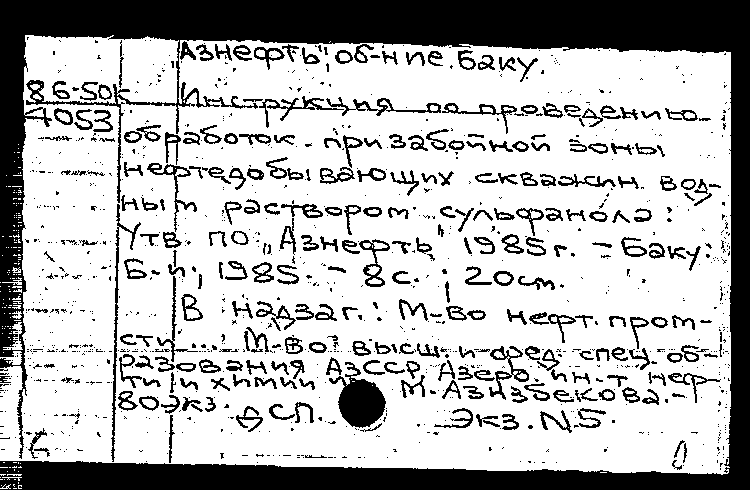 "Азнефть", об-ние. Баку.
86-50к Инструкция по проведению
4053 обработок призабойной зоны
нефтедобывающих скважин вод-
ным раствором сульфанола:
Утв. ПО "Азнефть" 1985г. - Баку:
Б.и., 1985. - 8с.; 20см.
В надзаг.: М-во нефт. пром-
сти...; М-во высш. и сред. спец. об-
разования АзССР, Азерб. ин-т неф-
ти и химии М. Азизбекова. -
80экз. ДСП. Экз. N5.